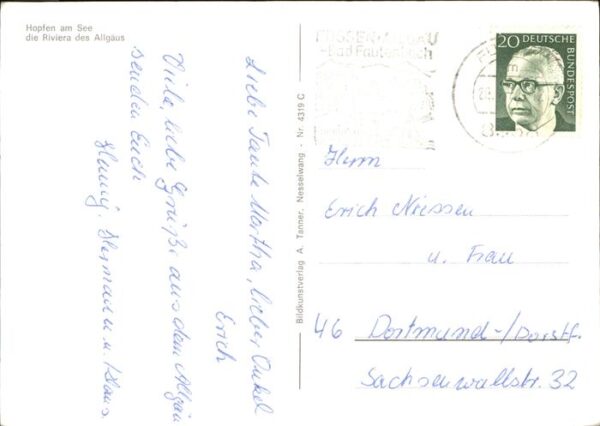 Hopfen am See
die Riviera des Allgäus
Liebe Tante Martha, lieber Onkel
Erich
Viele liebe Grüße aus dem Allgäu
senden Euch
Hermann u. Klaus
Bildkunstverlag A. Tanner, Nesselwang - Nr. 4319 C
FÜSSEN-ALLGÄU
-Bad Faulenbach
20 DEUTSCHE
BUNDESPOST
Herrn
Erich Niessen
u. Frau
46 Dortmund-/Dorstf.
Sachsenwaldstr. 32